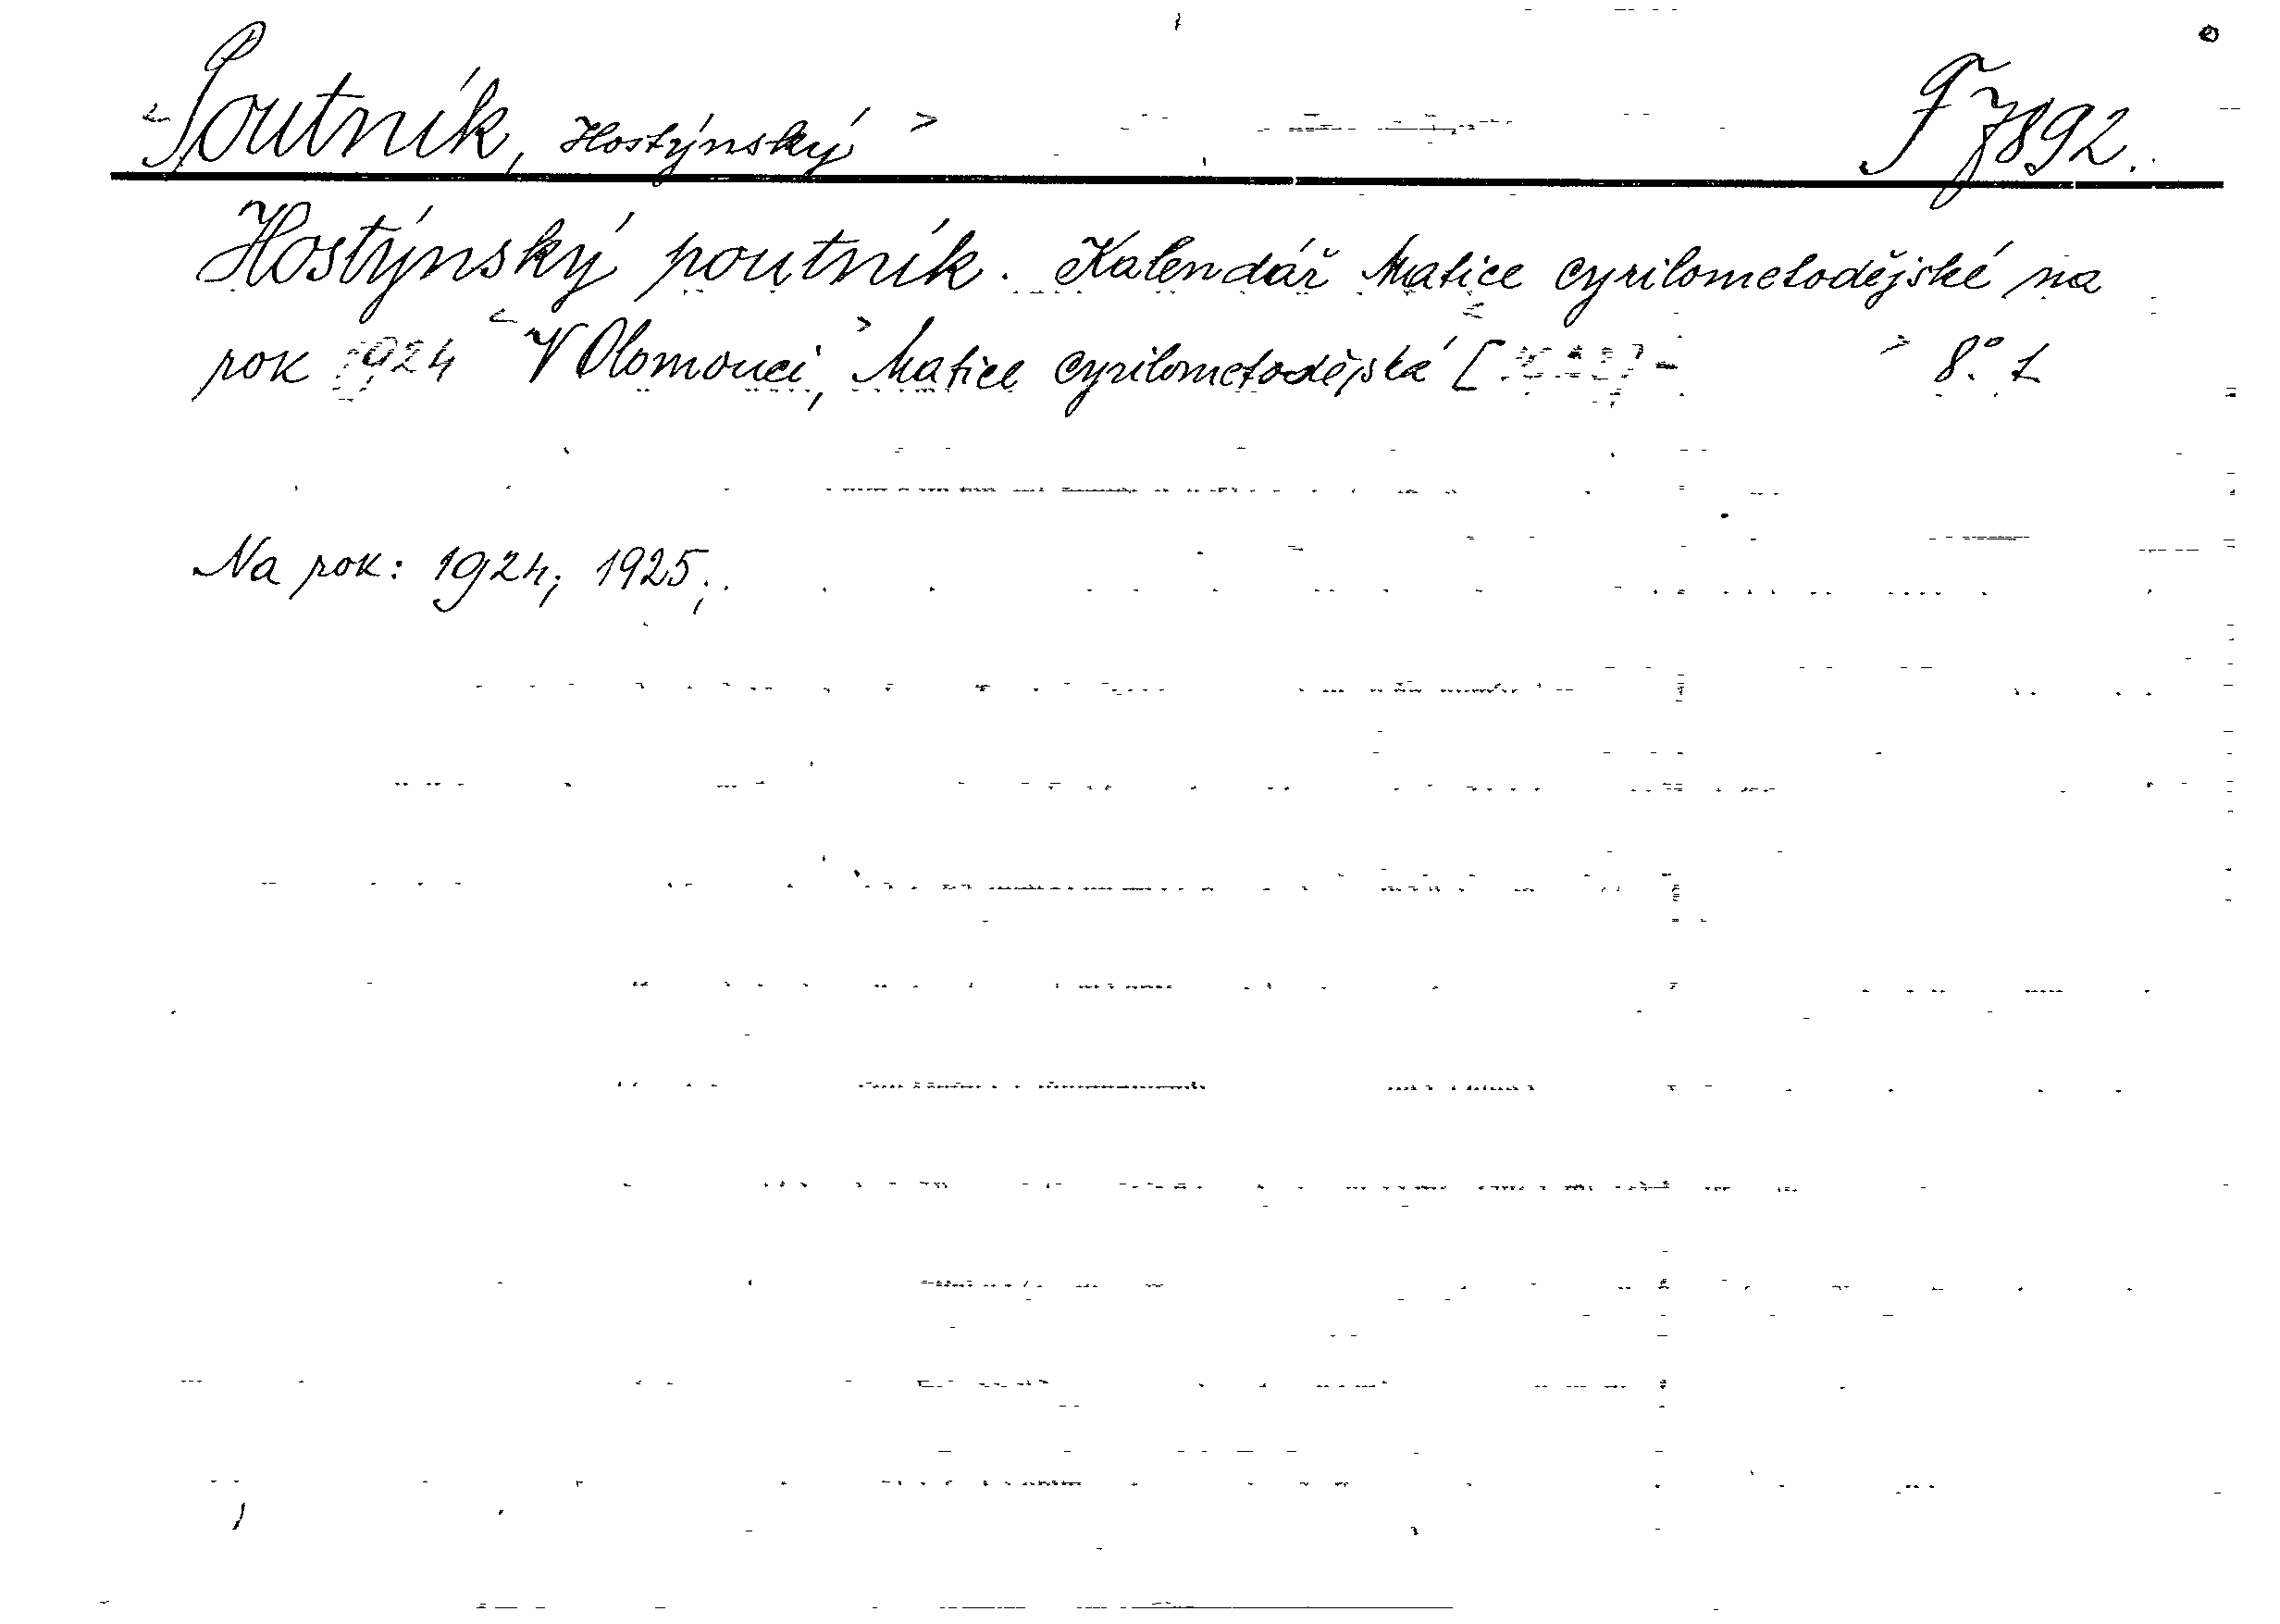 <Poutník, Hostýnský> F 7892.
Hostýnský poutník. Kalendář Matice cyrilometodějské na
rok 1924 <V Olomouci,> Matice cyrilometodějská < [ ] - > 8.° 1
Na rok: 1924; 1925;